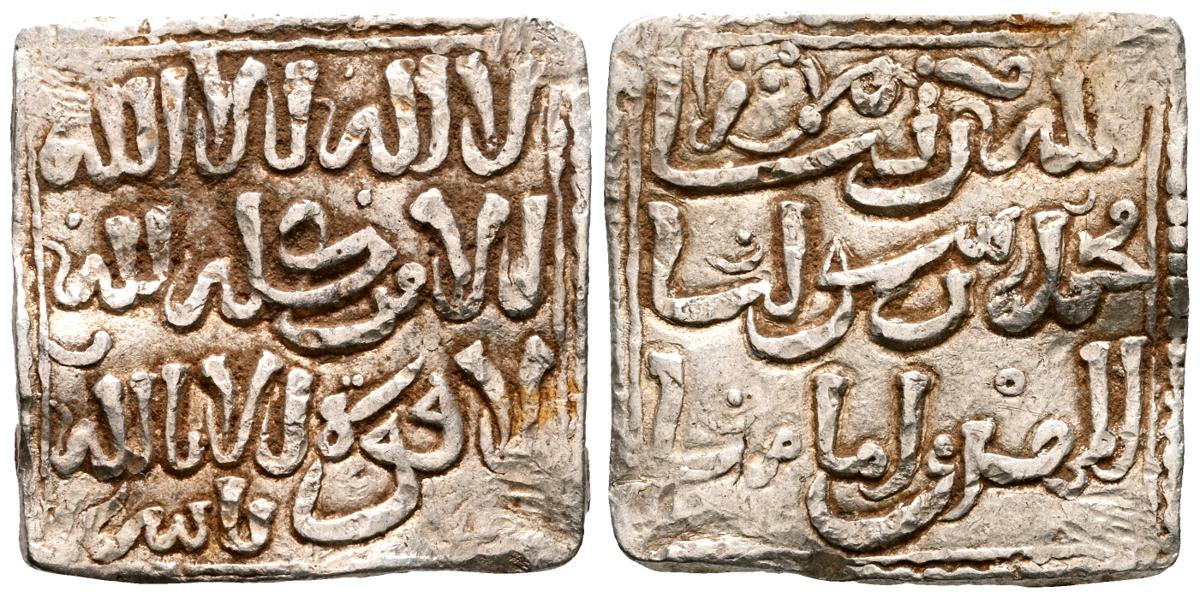 لا اله الا الله
الامر كله لله
لا قوة الا بالله
فاس
الله ربنا
محمد رسولنا
المهدي امامنا